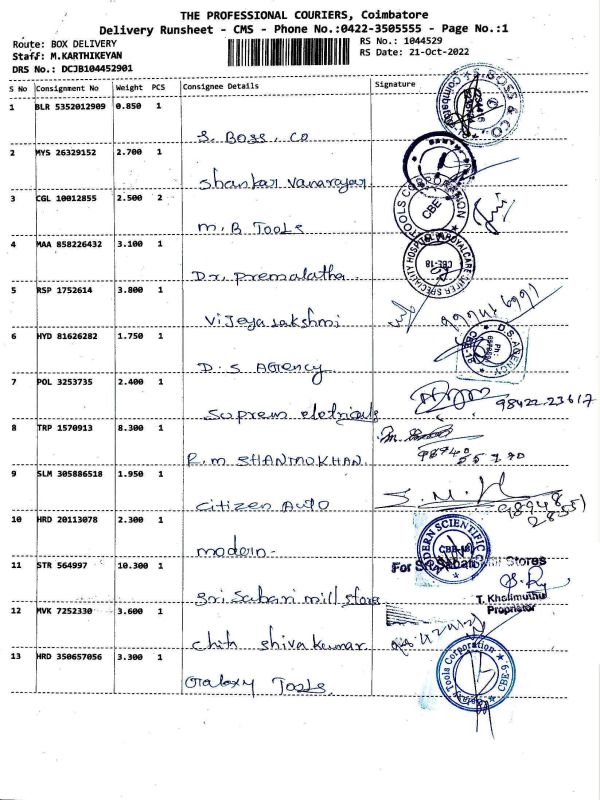 THE PROFESSIONAL COURIERS, Coimbatore
Delivery Runsheet - CMS - Phone No.:0422-3505555 - Page No.:1
Route: BOX DELIVERY
RS No.: 1044529
Staff: M.KARTHIKEYAN
RS Date: 21-Oct-2022
DRS No.: DCJB104452901
S No Consignment No Weight PCS Consignee Details Signature
1 BLR 5352012909 0.850 1
S. BOSS & CO
S. BOSS & CO.
2 MYS 26329152 2.700 1
Shankar Vanarayar
3 CGL 10012855 2.500 2
TOOLS CORPORATION
CBE
M.B Tools
4 MAA 858226432 3.100 1
ROYALCARE SUPER SPECIALITY HOSPITAL
CBE-18
Dr. Premalatha
5 RSP 1752614 3.800 1
Vijeyalakshmi
6 HYD 81626282 1.750 1
D.S. AGENCY
D.S AGENCY
7 POL 3253735 2.400 1
98422-23617
Suprem eletricals
8 TRP 1570913 8.300 1
R.M SHANMUKHAN
9 SLM 305886518 1.950 1
Citizen Auto
10 HRD 20113078 2.300 1
MODERN SCIENTIFIC CO
CBE-18
modern-
11 STR 564997 10.300 1
For Sri Sabari Mill Stores
T. Khalimuthu
Proprietor
Sri Sabari mill store
12 MVK 7252330 3.600 1
Chith Shivakumar
13 HRD 350657056 3.300 1
Galaxy Tools Corporation
CBE-9
Galaxy Tools